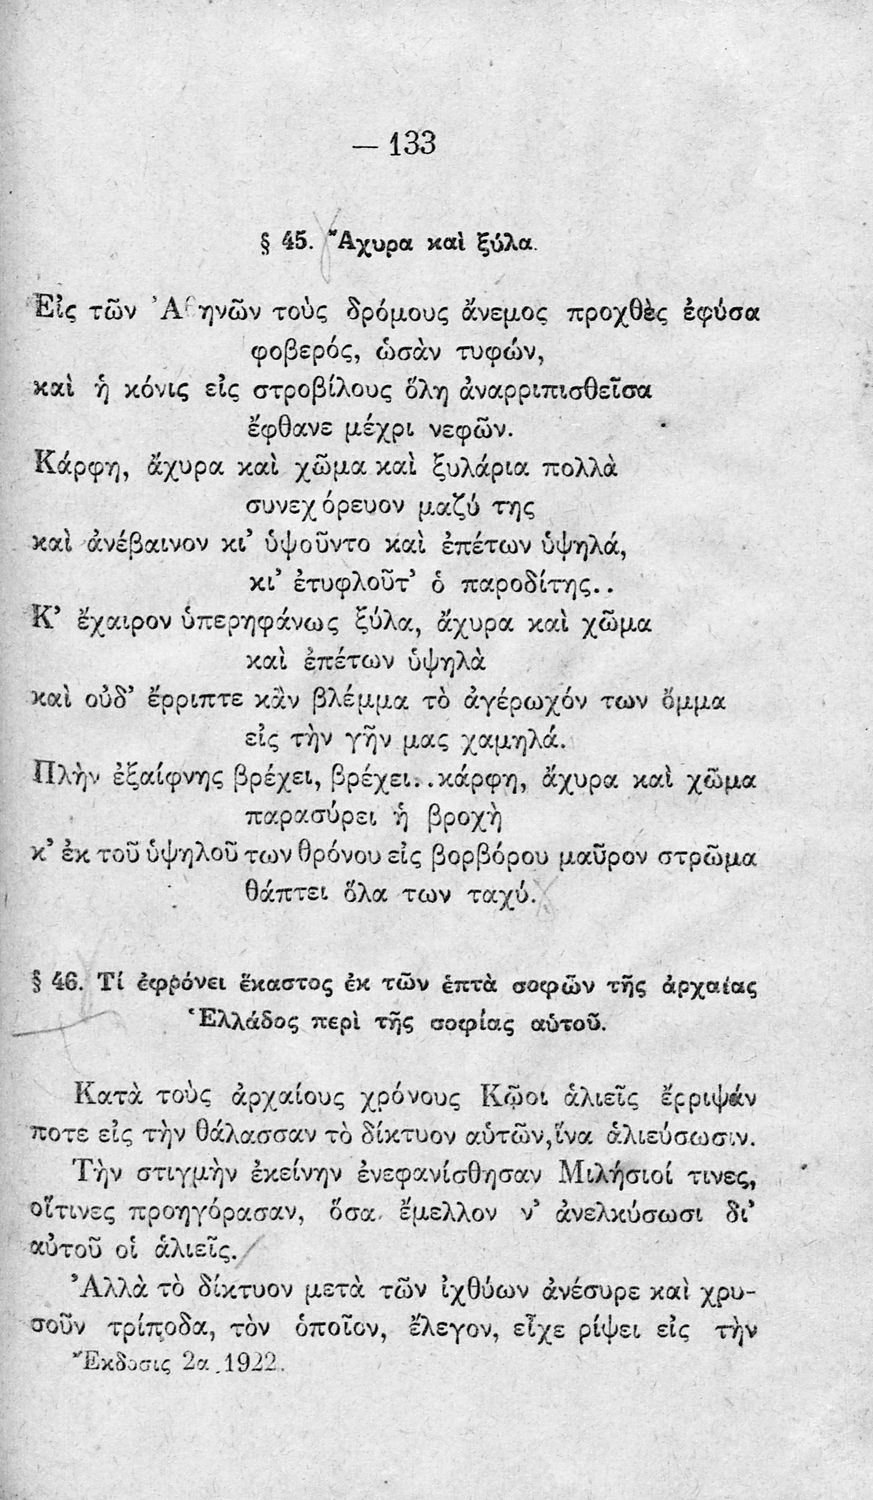 — 133
§ 45. Ἄχυρα καὶ ξύλα.
Εἰς τῶν Ἀθηνῶν τοὺς δρόμους ἄνεμος προχθὲς ἐφύσα
φοβερός, ὡσὰν τυφών,
καὶ ἡ κόνις εἰς στροβίλους ὅλη ἀναρριπισθεῖσα
ἔφθανε μέχρι νεφῶν.
Κάρφη, ἄχυρα καὶ χῶμα καὶ ξυλάρια πολλὰ
συνεχόρευον μαζύ της
καὶ ἀνέβαινον κι' ὑψοῦντο καὶ ἐπέτων ὑψηλά,
κι' ἐτυφλοῦτ' ὁ παροδίτης..
Κ' ἔχαιρον ὑπερηφάνως ξύλα, ἄχυρα καὶ χῶμα
καὶ ἐπέτων ὑψηλὰ
καὶ οὐδ' ἔρριπτε κἂν βλέμμα τὸ ἀγέρωχόν των ὄμμα
εἰς τὴν γῆν μας χαμηλά.
Πλὴν ἐξαίφνης βρέχει, βρέχει..κάρφη, ἄχυρα καὶ χῶμα
παρασύρει ἡ βροχὴ
κ' ἐκ τοῦ ὑψηλοῦ των θρόνου εἰς βορβόρου μαῦρον στρῶμα
θάπτει ὅλα των ταχύ.
§ 46. Τί ἐφρόνει ἕκαστος ἐκ τῶν ἑπτὰ σοφῶν τῆς ἀρχαίας
Ἑλλάδος περὶ τῆς σοφίας αὑτοῦ.
Κατὰ τοὺς ἀρχαίους χρόνους Κῷοι ἁλιεῖς ἔρριψάν
ποτε εἰς τὴν θάλασσαν τὸ δίκτυον αὑτῶν,ἵνα ἁλιεύσωσιν.
Τὴν στιγμὴν ἐκείνην ἐνεφανίσθησαν Μιλήσιοί τινες,
οἵτινες προηγόρασαν, ὅσα ἔμελλον ν' ἀνελκύσωσι δι'
αὐτοῦ οἱ ἁλιεῖς.
Ἀλλὰ τὸ δίκτυον μετὰ τῶν ἰχθύων ἀνέσυρε καὶ χρυ-
σοῦν τρίποδα, τὸν ὁποῖον, ἔλεγον, εἶχε ρίψει εἰς τὴν
Ἔκδοσις 2α .1922.